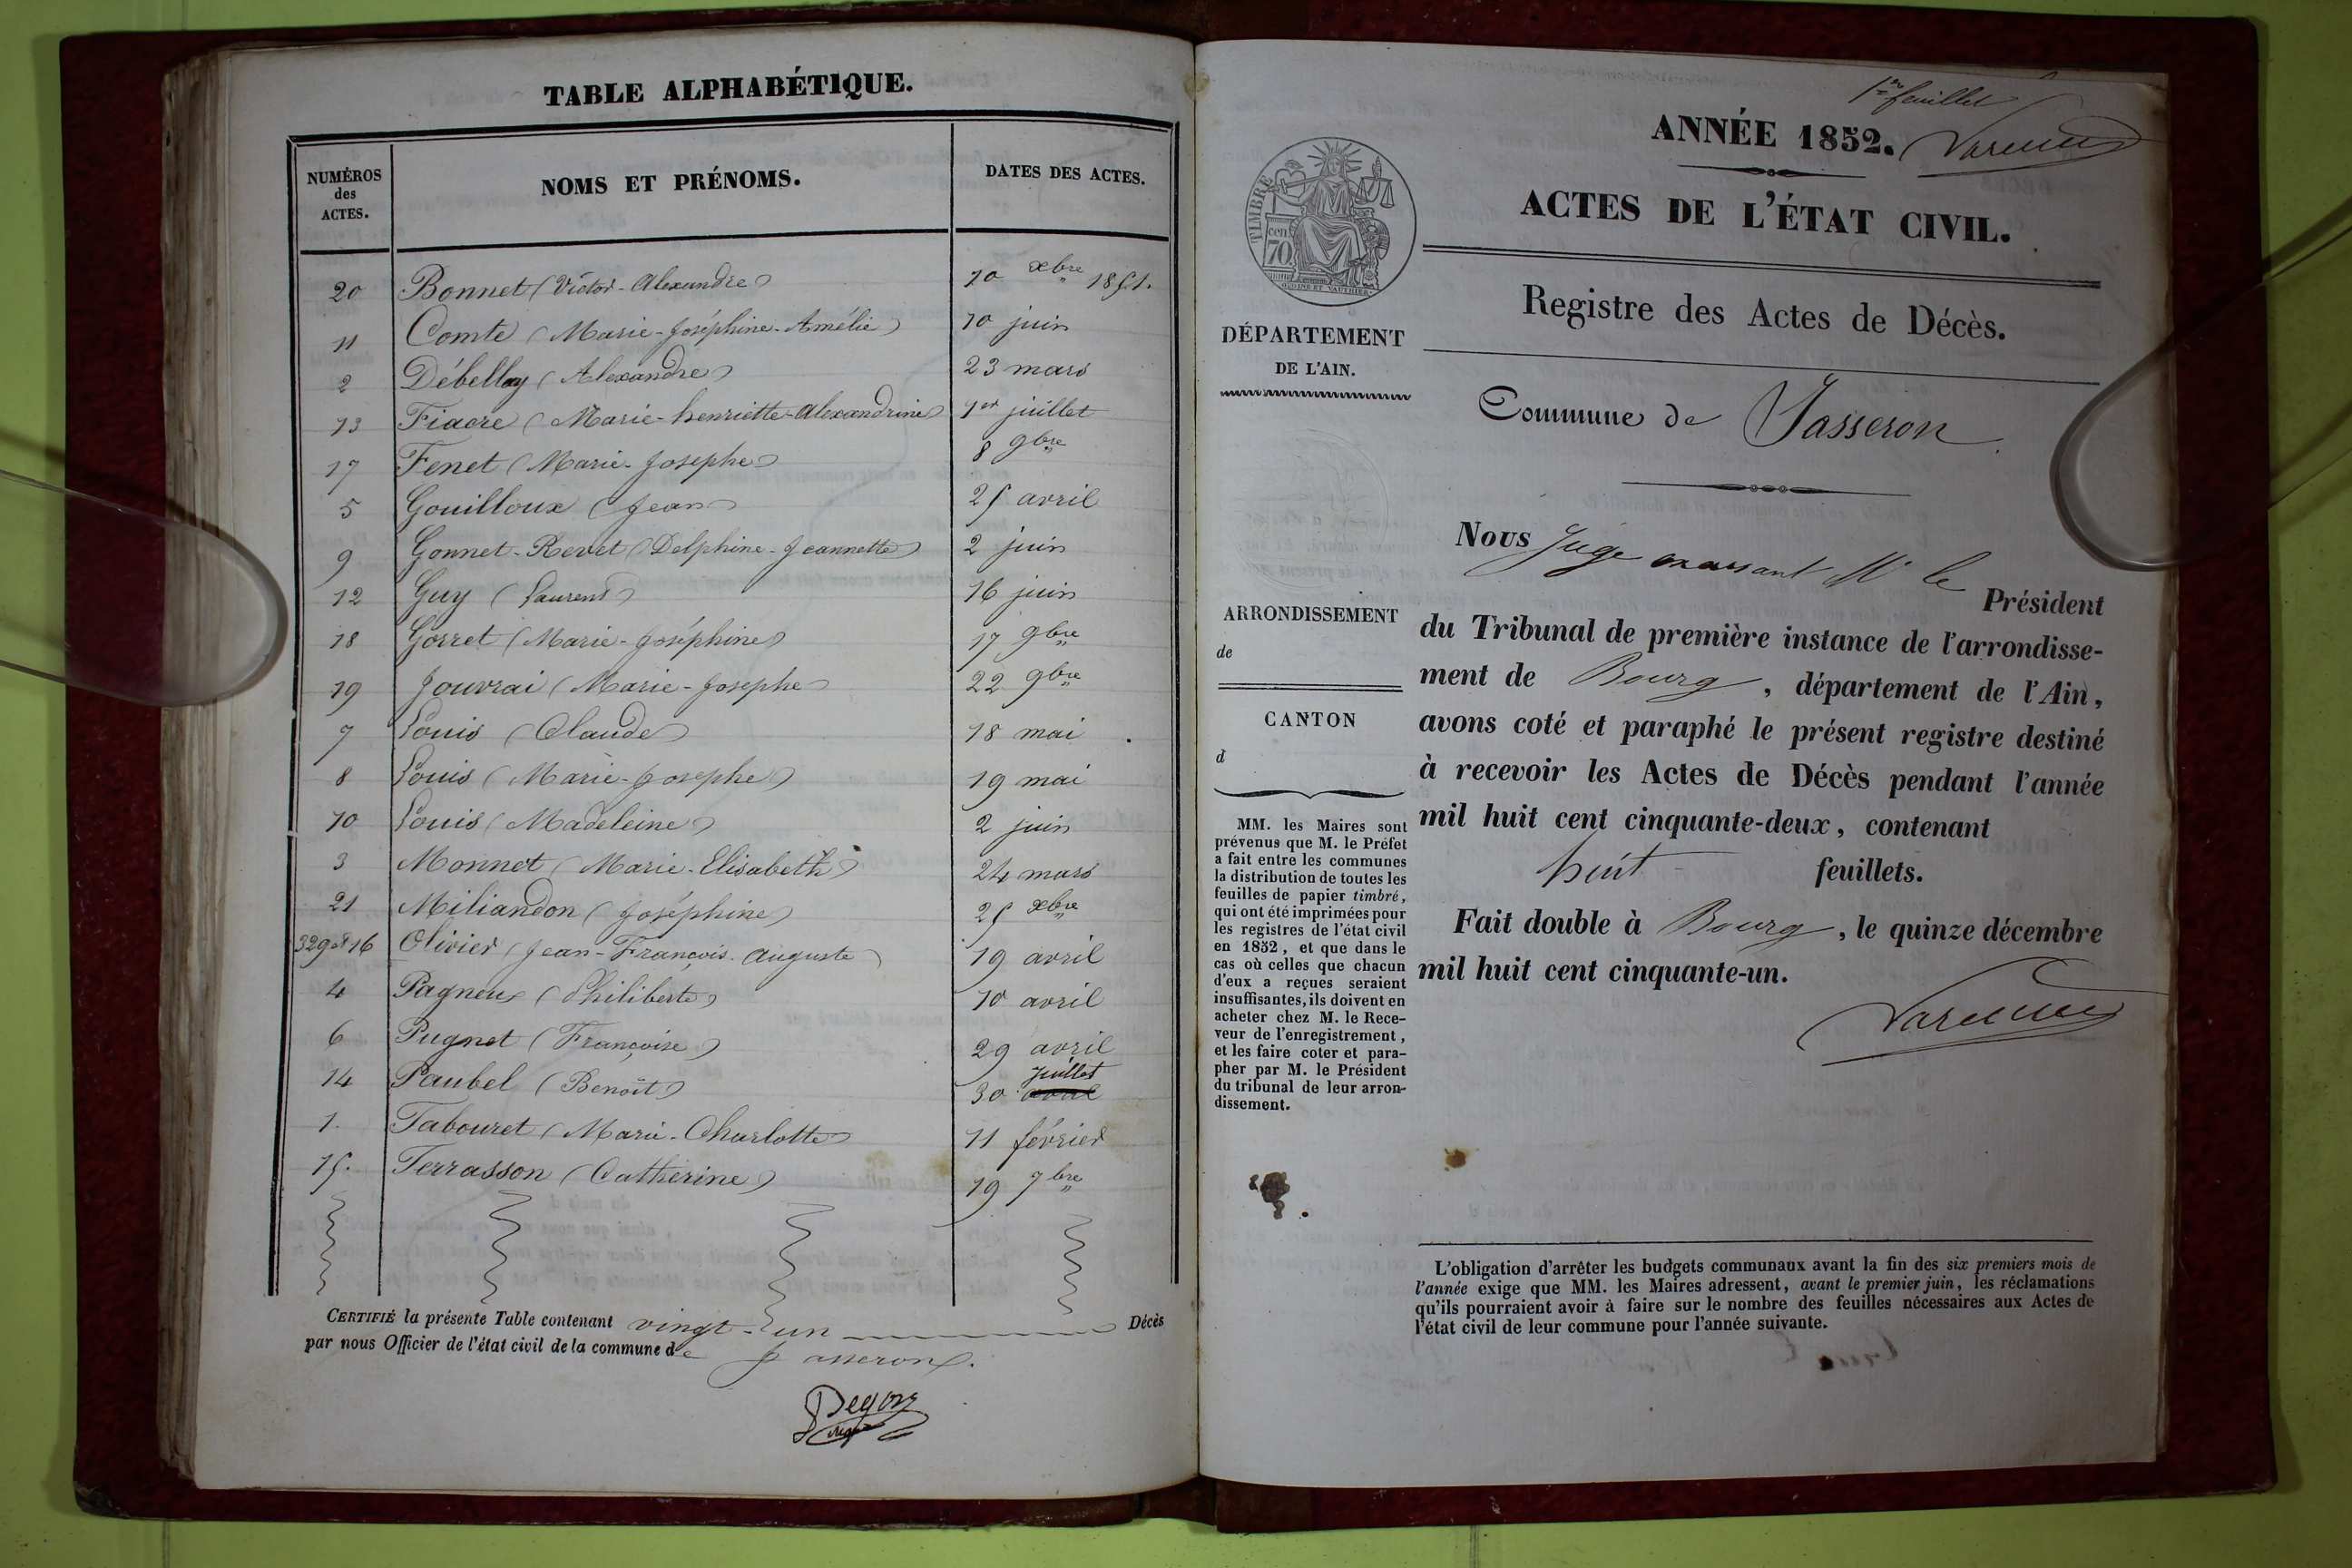 TABLE ALPHABÉTIQUE.
NUMÉROS
des
ACTES.
NOMS ET PRÉNOMS.
DATES DES ACTES.
20 Bonnet (Victor-Alexandre) 10 xbre 1851.
11 Comte (Marie-Joséphine-Amélie) 10 juin
2 Débellay (Alexandre) 23 mars
13 Fiacre (Marie-henriette-Alexandrine) 1er juillet
17 Fenet (Marie-Josephe) 8 9bre
5 Gouilloux (Jean) 25 avril
9 Gonnet-Revet (Delphine-Jeannette) 2 juin
12 Guy (Laurent) 16 juin
18 Gorret (Marie-Joséphine) 17 9bre
19 Jouvrai (Marie-Josephe) 22 9bre
7 Louis (Claude) 18 mai
8 Louis (Marie-Josephe) 19 mai
10 Louis (Madeleine) 2 juin
3 Monnet (Marie-Elisabeth) 24 mars
21 Miliandon (Joséphine) 25 xbre
16 Olivier (Jean-François-Auguste) 19 avril
4 Pagneux (Philiberte) 10 avril
6 Pugnet (Françoise) 29 avril
14 Paubel (Benoît) 30 avril juillet
1. Tabouret (Marie-Charlotte) 11 février
15. Terrasson (Catherine) 19 7bre
CERTIFIÉ la présente Table contenant vingt-un Décès
par nous Officier de l'état civil de la commune de Jasseron.
1er feuillet
ANNÉE 1852.
ACTES DE L'ÉTAT CIVIL.
TIMBRE
70 cen
Registre des Actes de Décès.
DÉPARTEMENT
DE L'AIN.
Commune de Jasseron
Nous Juge Mr le Président
du Tribunal de première instance de l'arrondisse-
ment de Bourg, département de l'Ain,
avons coté et paraphé le présent registre destiné
à recevoir les Actes de Décès pendant l'année
mil huit cent cinquante-deux, contenant
huit feuillets.
Fait double à Bourg, le quinze décembre
mil huit cent cinquante-un.
ARRONDISSEMENT
de
CANTON
d
MM. les Maires sont
prévenus que M. le Préfet
a fait entre les communes
la distribution de toutes les
feuilles de papier timbré,
qui ont été imprimées pour
les registres de l'état civil
en 1852, et que dans le
cas où celles que chacun
d'eux a reçues seraient
insuffisantes, ils doivent en
acheter chez M. le Rece-
veur de l'enregistrement,
et les faire coter et para-
pher par M. le Président
du tribunal de leur arron-
dissement.
L'obligation d'arrêter les budgets communaux avant la fin des six premiers mois de
l'année exige que MM. les Maires adressent, avant le premier juin, les réclamations
qu'ils pourraient avoir à faire sur le nombre des feuilles nécessaires aux Actes de
l'état civil de leur commune pour l'année suivante.